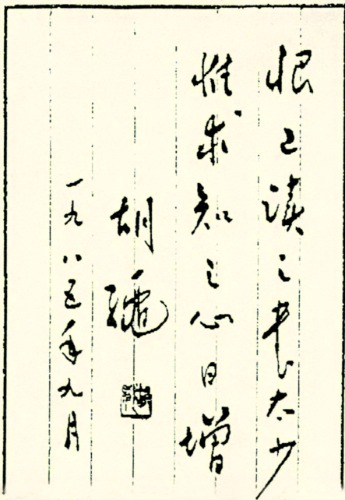 恨已读之书太少
惟求知之心日增
胡繩
一九八五年九月